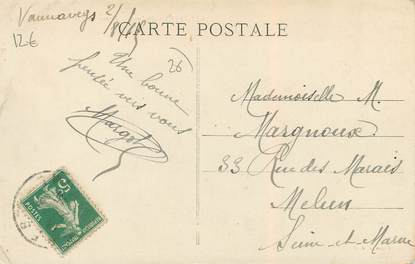 Vaunaveys 2/
12€
CARTE POSTALE
26
Une bonne
pensée vers vous
Margot
Mademoiselle M.
Margnoux
33 Rue des Marais
Melun
Seine-et-Marne
5c
POSTES